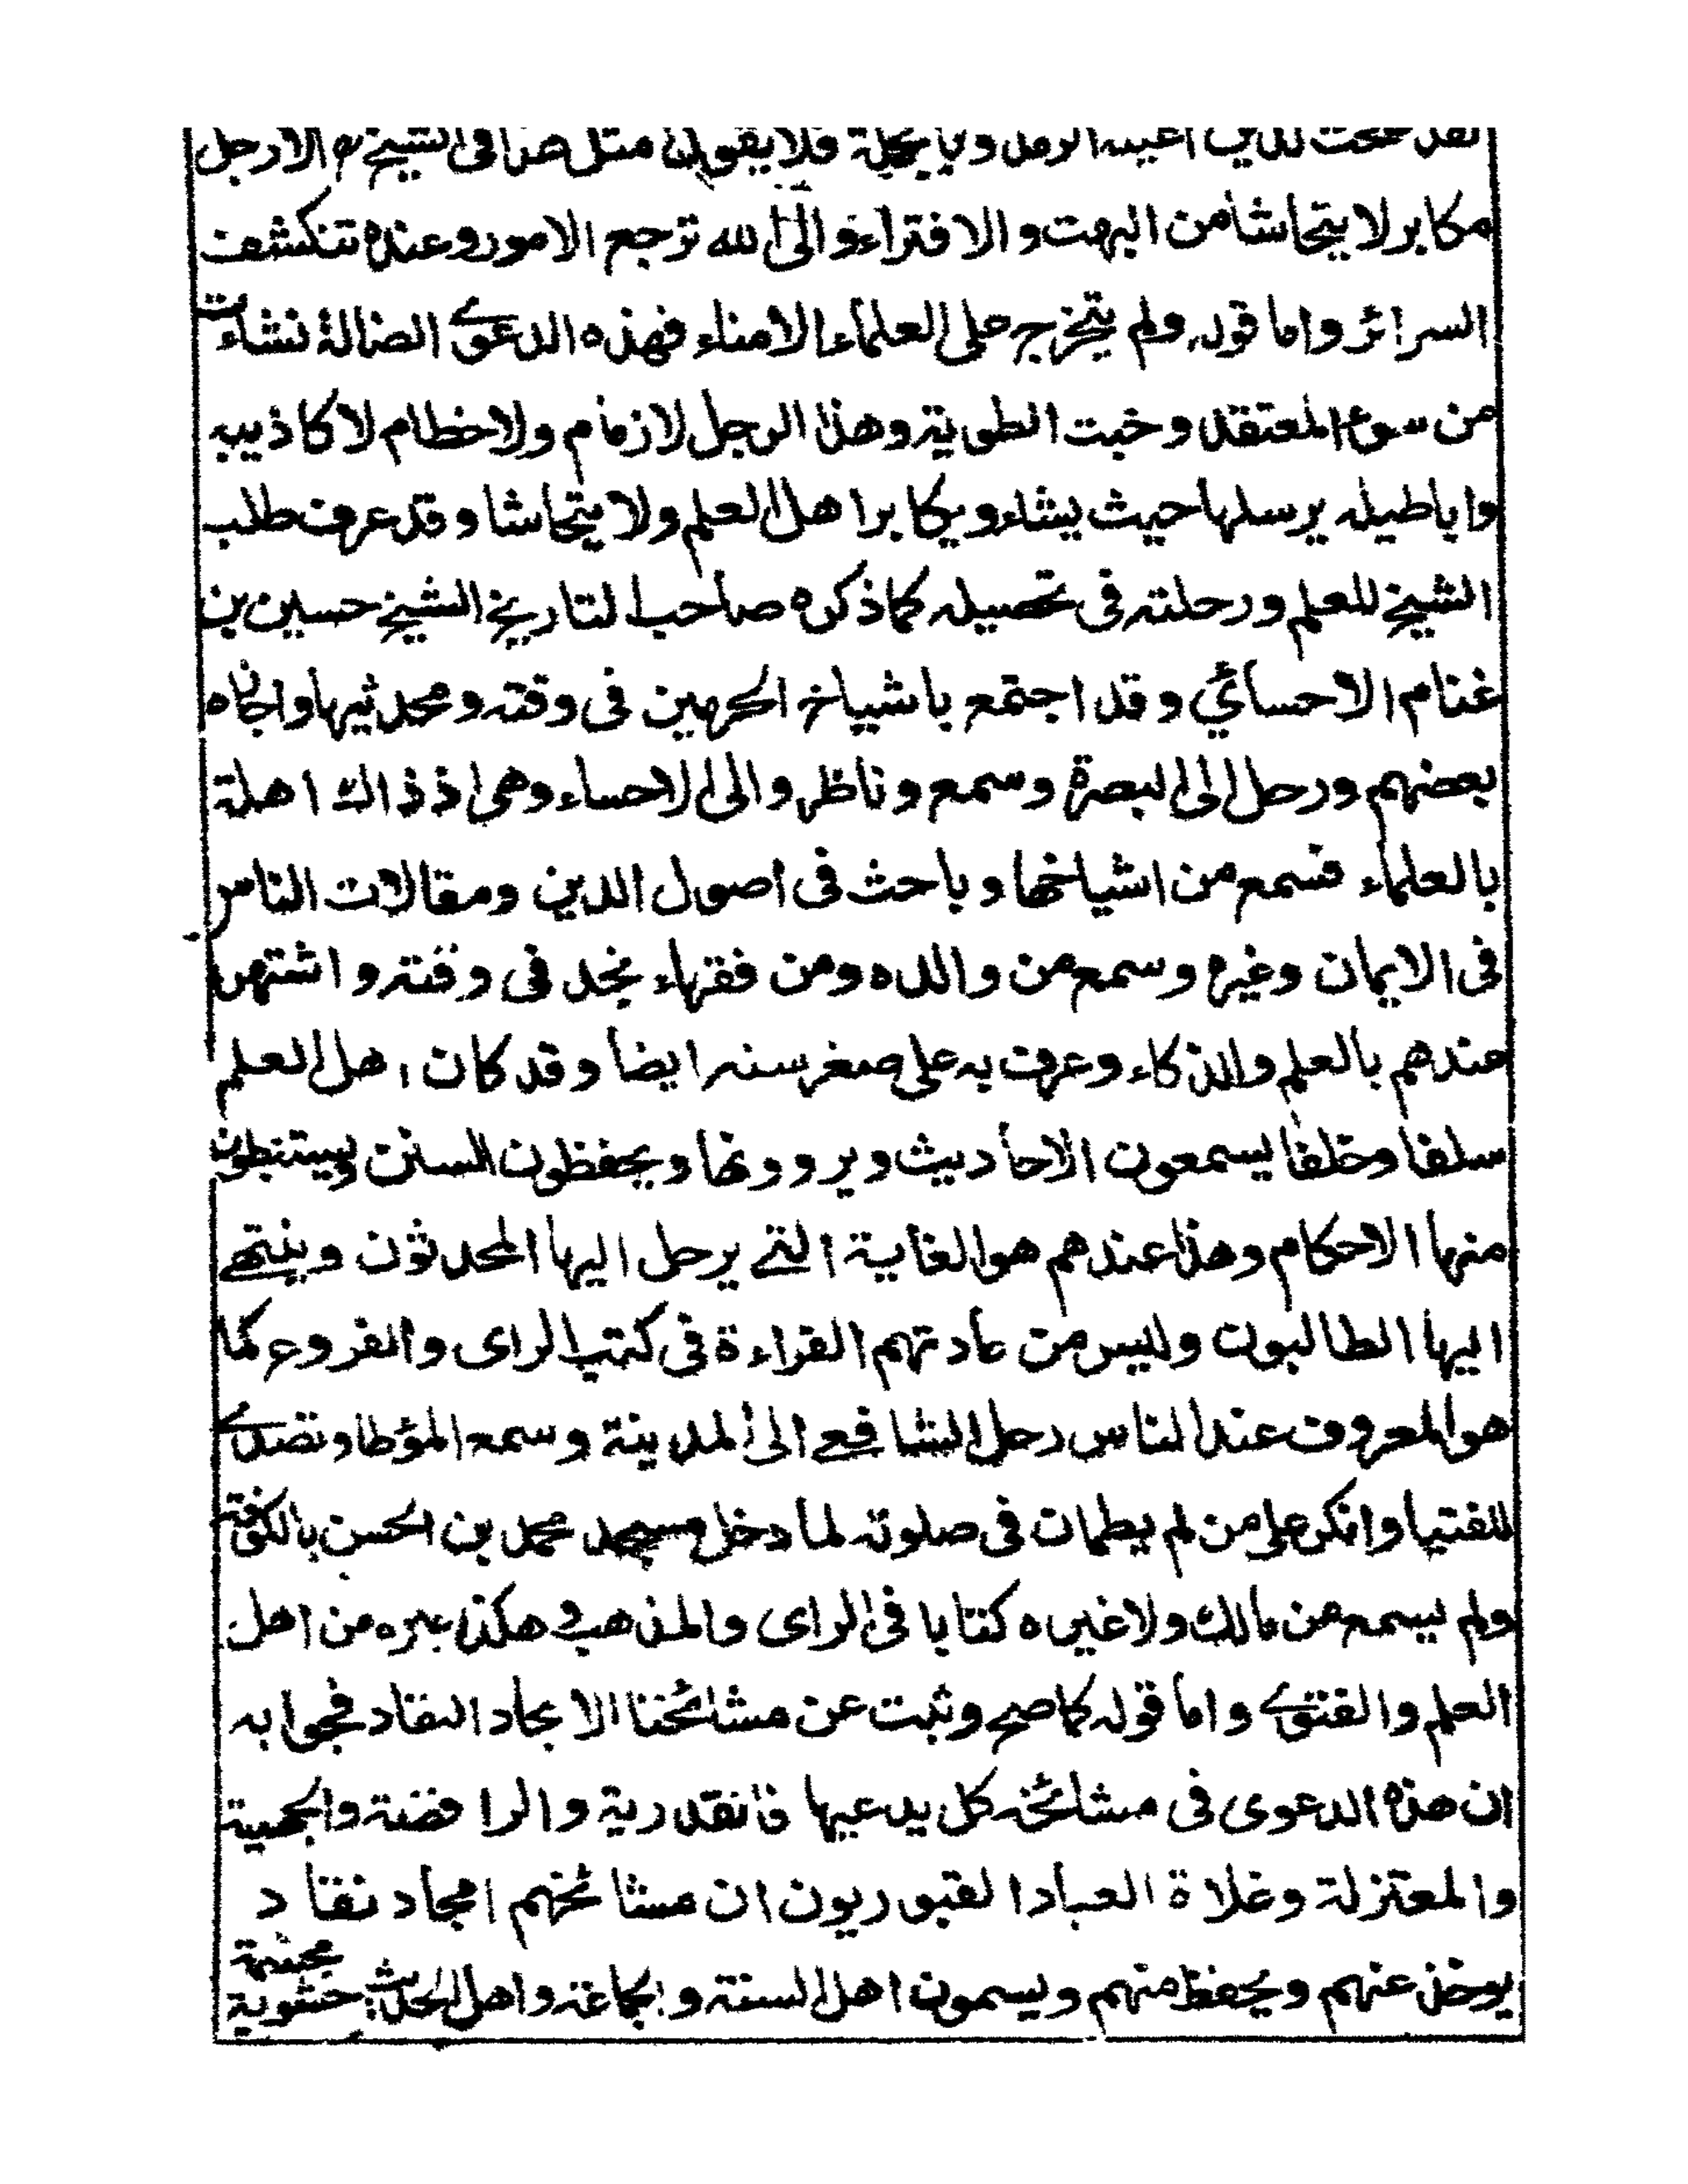 وبالجملة فلا يقول مثل هذا في الشيخ الا رجل
مكابر لا يتحاشا من البهت والافتراء والى الله ترجع الامور وعنده تنكشف
السرائر واما قوله ولم يتخرج على العلماء الامناء فهذه الدعوى الضالة نشاءت
من سوء المعتقد وخبث الطوية وهذا الرجل لا زمام ولا خطام لاكاذيبه
واباطيله يرسلها حيث يشاء ويكابر اهل العلم ولا يتحاشا وقد عرف طلب
الشيخ للعلم ورحلته فى تحصيله كما ذكره صاحب التاريخ الشيخ حسين بن
غنام الاحسائي وقد اجتمع باشياخ الحرمين فى وقته ومحدثيها واجازه
بعضهم ورحل الى البصرة وسمع وناظر والى الاحساء وهى اذ ذاك اهلة
بالعلماء فسمع من اشياخها وباحث فى اصول الدين ومقالات الناس
فى الايمان وغيره وسمع من والده ومن فقهاء نجد فى وقته واشتهر
عندهم بالعلم والذكاء وعرف به على صغر سنه ايضا وقد كان اهل العلم
سلفا وخلفا يسمعون الاحاديث ويروونها ويحفظون السنن ويستنبطون
منها الاحكام وهذا عندهم هو الغاية التے يرحل اليها المحدثون وينتهے
اليها الطالبون وليس من عادتهم القراءة فى كتب الراى والفروع كما
هو المعروف عند الناس رحل الشافعے الى المدينة وسمع المؤطا وتصدے
للفتيا وانكر على من لم يطمان فى صلوته لما دخل مسجد محمد بن الحسن بالكوفة
ولم يسمع من مالك ولا غيره كتابا فى الراى والمذهب وهكذا غيره من اهل
العلم والفتوے واما قوله كما صح وثبت عن مشائخنا الامجاد النقاد فجوابه
ان هذه الدعوى فى مشائخه كل يدعيها فالقدرية والرافضة والجهمية
والمعتزلة وغلاة العباد القبوريون ان مشائخهم امجاد نقاد
يوخذ عنهم ويحفظ منهم ويسمون اهل السنة والجماعة واهل الحديث حشوية
مجسمة